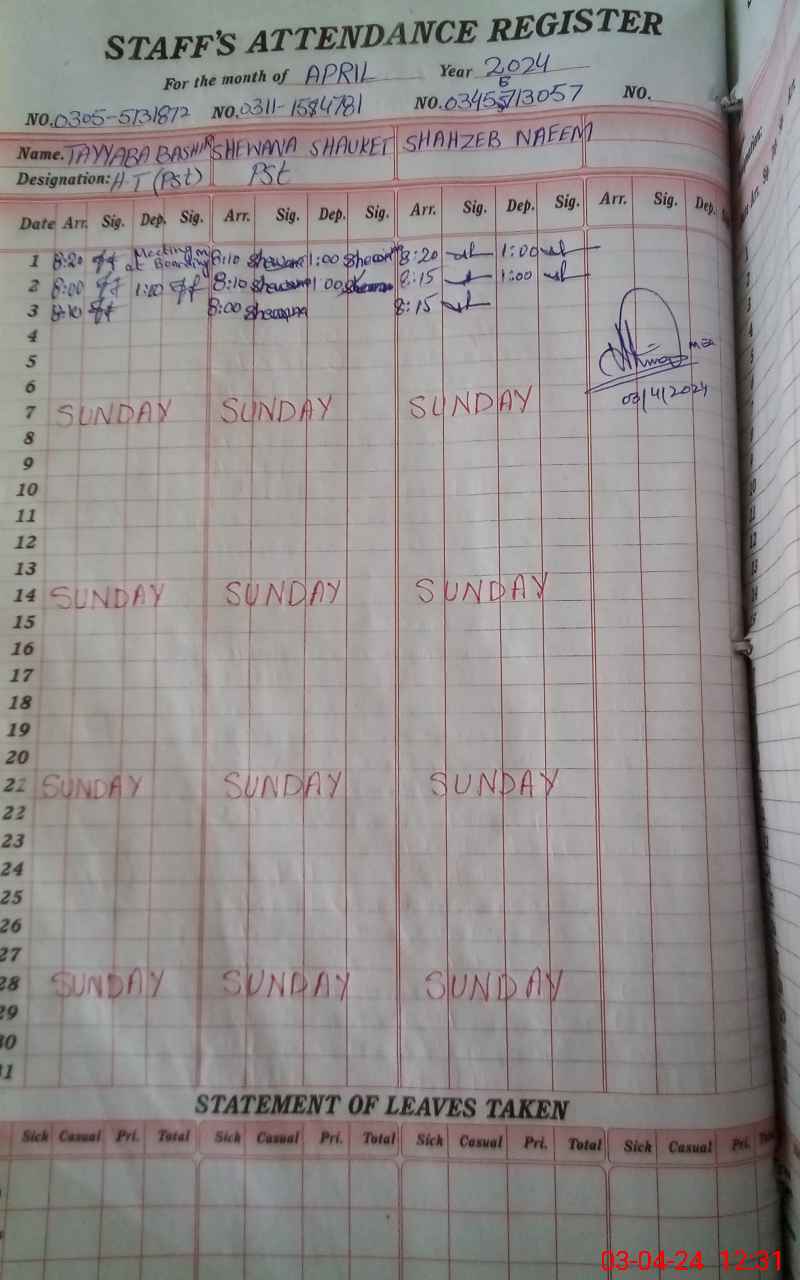 STAFF'S ATTENDANCE REGISTER
For the month of APRIL Year 2024
NO. 0305-5131872 NO. 0311-1584781 NO. 03455713057 NO.
Name. TAYYABA BASHIR SHEWANA SHAUKET SHAHZEB NAEEM
Designation: H-T (Pst) PSt
Date Arr. Sig. Dep. Sig. Arr. Sig. Dep. Sig. Arr. Sig. Dep. Sig. Arr. Sig. Dep.
1 8:20 Meeting at Boarding 8:10 Shewana 1:00 Shewana 8:20 1:00
2 8:00 8:10 Shewana 1:00 Shewana 8:15 1:00
3 8:10 8:00 Shewana 8:15
4
5
6
03/4/2024
7 SUNDAY SUNDAY SUNDAY
8
9
10
11
12
13
14 SUNDAY SUNDAY SUNDAY
15
16
17
18
19
20
21 SUNDAY SUNDAY SUNDAY
22
23
24
25
26
27
28 SUNDAY SUNDAY SUNDAY
29
30
31
STATEMENT OF LEAVES TAKEN
Sick Casual Pri. Total Sick Casual Pri. Total Sick Casual Pri. Total Sick Casual Pri.
03-04-24 12:31